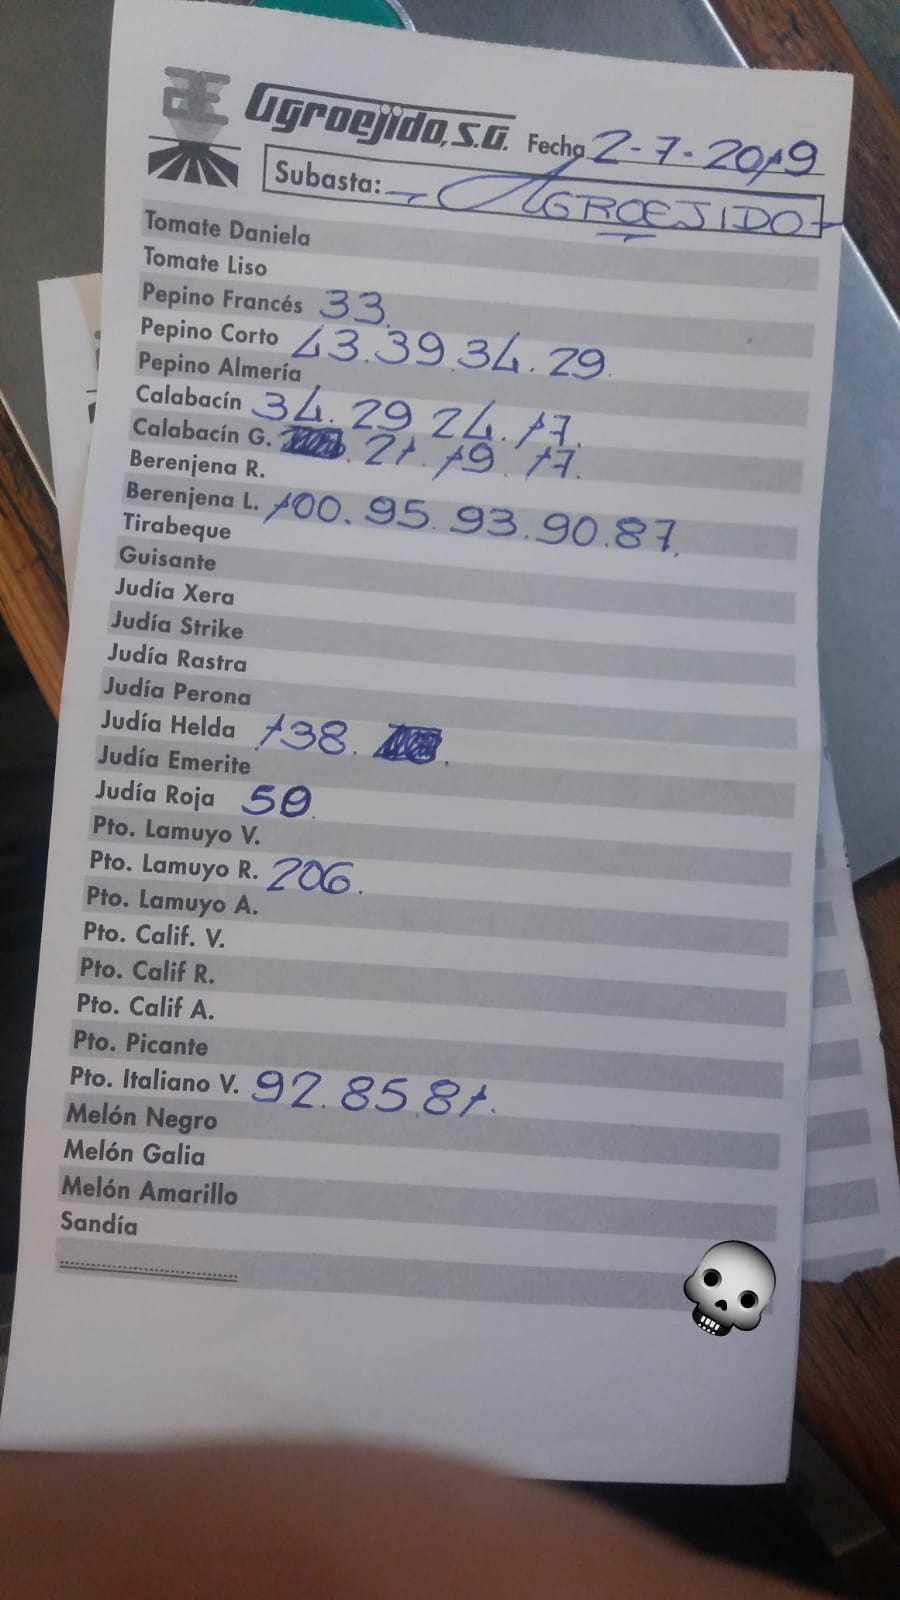 Agroejido, S.A. Fecha 2-7-2019
Subasta: - AGROEJIDO -
Tomate Daniela
Tomate Liso
Pepino Francés 33.
Pepino Corto 43.39.34.29.
Pepino Almería
Calabacín 34.29 24.17.
Calabacín G. . 21.19.17.
Berenjena R.
Berenjena L. 100.95.93.90.87.
Tirabeque
Guisante
Judía Xera
Judía Strike
Judía Rastra
Judía Perona
Judía Helda 138. .
Judía Emerite
Judía Roja 50.
Pto. Lamuyo V.
Pto. Lamuyo R. 206.
Pto. Lamuyo A.
Pto. Calif. V.
Pto. Calif R.
Pto. Calif A.
Pto. Picante
Pto. Italiano V. 92.85.81.
Melón Negro
Melón Galia
Melón Amarillo
Sandía